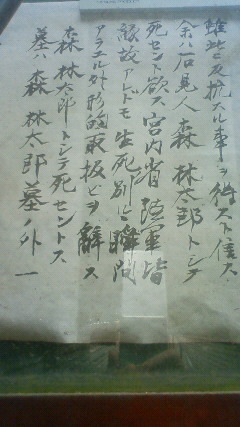 雖此ニ反抗スル事ヲ得スト信ス
余ハ石見人森林太郎トシテ
死セント欲ス宮内省陸軍皆
縁故アレドモ生死別ルヽ瞬間
アラユル外形的取扱ヒヲ辭ス
森林太郎トシテ死セントス
墓ハ森林太郎墓ノ外一